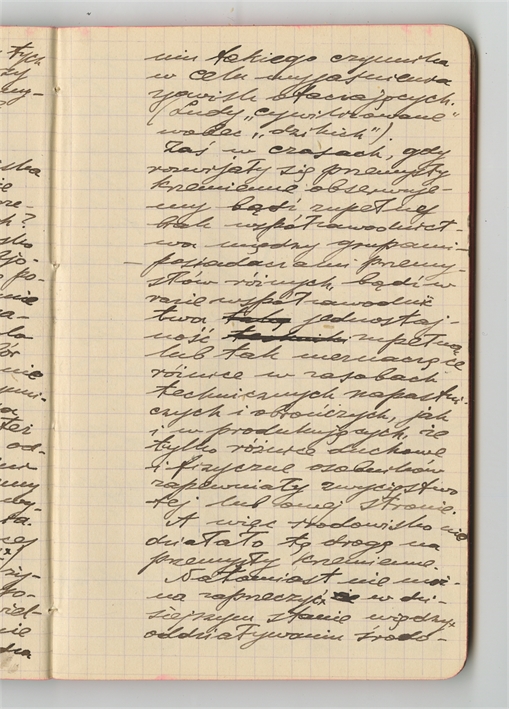 nia takiego czynnika
w celu wyjaśnienia
zjawisk otaczających.
(Ludy „cywilizowane"
wobec „dzikich").
Zaś w czasach, gdy
rozwijały się przemysły
krzemienne obserwuje-
my bądź zupełny
brak współzawodnict-
wa między grupami-
posiadaczami przemy-
słów różnych, bądź w
razie współzawodnic
twa jednostaj-
ność zupełną
lub tak nieznaczące
różnice w zasobach
technicznych napastni-
czych i obronczych, jak
i w produkujących, że
tylko różnice duchowe
i fizyczne osobników
zapewniały zwycięstwo
tej lub owej stronie.
A więc środowisko nie
działało tą drogą na
przemysły krzemienne.
Natomiast nie moż-
na zaprzeczyć w dzi-
siejszym stanie wiedzy
oddziaływaniu środo-